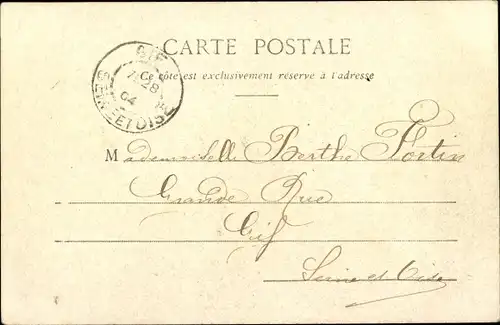 CARTE POSTALE
Ce côté est exclusivement réservé à l'adresse
GIF
28
04
SEINE-ET-OISE
Mademoiselle Berthe Fortin
Grande Rue
Gif
Seine et Oise